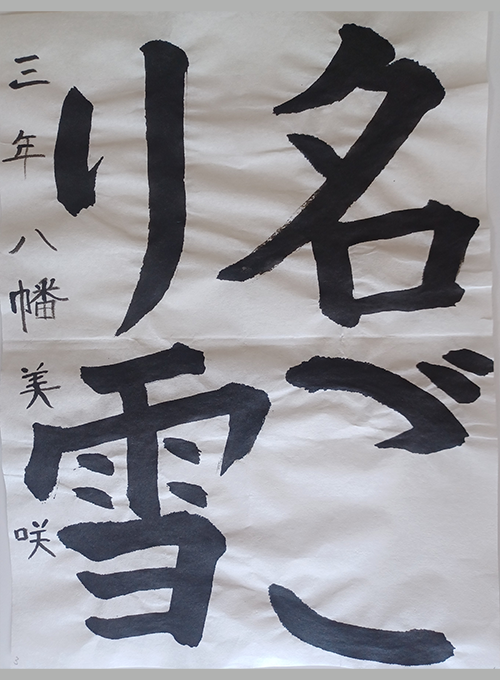 名ご
り雪
三年八幡美咲